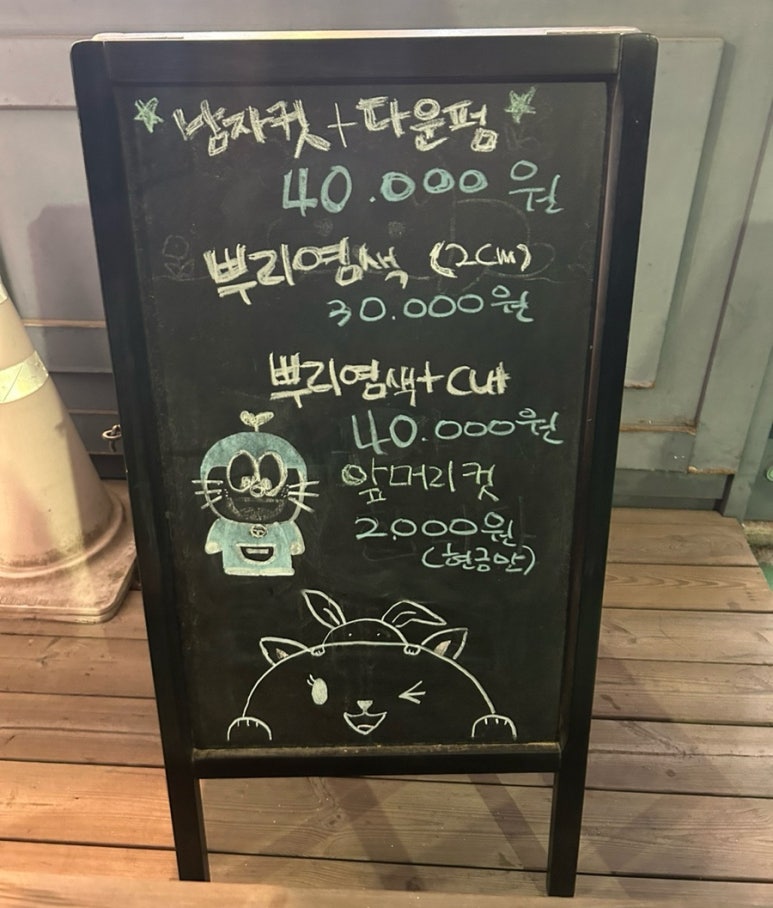 남자컷+다운펌
40.000원
뿌리염색 (2cm)
30.000원
뿌리염색+C네
40.000원
앞머리컷
2.000원
(현금만)